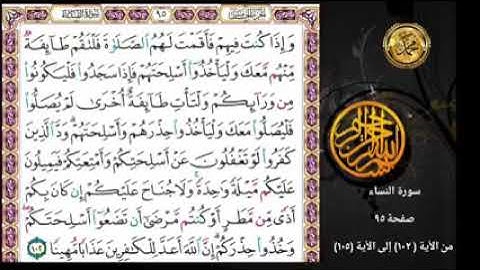 سُورَةُ النِّسَاءِ ٩٥ الجُزْءُ الخَامِسُ
وَإِذَا كُنتَ فِيهِمْ فَأَقَمْتَ لَهُمُ ٱلصَّلَوٰةَ فَلْتَقُمْ طَآئِفَةٌ
مِّنْهُم مَّعَكَ وَلْيَأْخُذُوٓا۟ أَسْلِحَتَهُمْ فَإِذَا سَجَدُوا۟ فَلْيَكُونُوا۟
مِن وَرَآئِكُمْ وَلْتَأْتِ طَآئِفَةٌ أُخْرَىٰ لَمْ يُصَلُّوا۟
فَلْيُصَلُّوا۟ مَعَكَ وَلْيَأْخُذُوا۟ حِذْرَهُمْ وَأَسْلِحَتَهُمْ وَدَّ ٱلَّذِينَ
كَفَرُوا۟ لَوْ تَغْفُلُونَ عَنْ أَسْلِحَتِكُمْ وَأَمْتِعَتِكُمْ فَيَمِيلُونَ
عَلَيْكُم مَّيْلَةً وَٰحِدَةً وَلَا جُنَاحَ عَلَيْكُمْ إِن كَانَ بِكُمْ
أَذًى مِّن مَّطَرٍ أَوْ كُنتُم مَّرْضَىٰٓ أَن تَضَعُوٓا۟ أَسْلِحَتَكُمْ
وَخُذُوا۟ حِذْرَكُمْ إِنَّ ٱللَّهَ أَعَدَّ لِلْكَٰفِرِينَ عَذَابًا مُّهِينًا ١٠٢
محمد
سورة النساء
صفحة ٩٥
من الآية (١٠٢) إلى الآية (١٠٥)